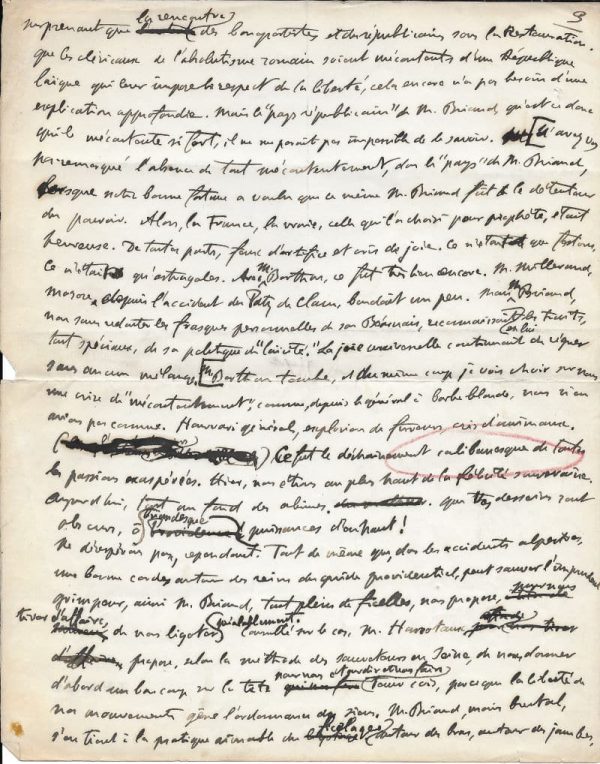 3
surprenant que la rencontre des bonapartistes et des républicains sous la Restauration.
que les cléricaux de l'absolutisme romain soient mécontents d'une République
laïque qui leur impose le respect de la liberté, cela encore n'a pas besoin d'une
explication approfondie. Mais le "pays républicain" de M. Briand, qu'est-ce donc
qui le mécontente si fort, il ne me paraît pas impossible de le savoir. [N'avez-vous
pas remarqué l'absence de tout mécontentement, dans le "pays" de M. Briand,
lorsque notre bonne fortune a voulu que ce même M. Briand fût le détenteur
du pouvoir. Alors, la France, la vraie, celle qui l'a choisi pour prophète, était
heureuse. De toutes parts, feux d'artifice et cris de joie. Ce n'étaient que festons,
ce n'était qu'astragales. Avec M. Barthou, ce fut très bien encore. M. Millerand,
depuis l'accident du Paty de Clam, boudait un peu. Mais M. Briand,
non sans redouter les frasques personnelles de son Béarnais, reconnaissait en lui des traits,
tout spéciaux, de sa politique de "laïcité". La joie universelle continuait de régner
sans aucun mélange. [M. Barthou tombe, et du même coup je vois choir sur nous
une crise de "mécontentement", comme, depuis le général à barbe blonde, nous n'en
avions pas connue. Hourvari général, explosion de fureurs, cris d'animaux.
Ce fut le déchaînement calibanesque de toutes
les passions exaspérées. Hier, nous étions au plus haut de la félicité souveraine.
Aujourd'hui, tout au fond des abîmes. que tes desseins sont
obscurs, ô briandesque puissances d'en haut!
Ne désespérons pas, cependant. Tout de même que, dans les accidents alpestres,
une bonne corde autour des reins du guide providentiel, peut sauver l'imprudent
grimpeur, ainsi M. Briand, tout plein de ficelles, nous propose, pour nous
tirer d'affaire, de nous ligoter préalablement. Consulté sur le cas, M. Hanotaux,
propose, selon la méthode des sauveteurs en Seine, de nous donner
d'abord un bon coup sur la tête pour nous étourdir et nous faire tenir cois, parce que la liberté de
nos mouvements gêne l'ordonnance des siens. M. Briand, moins brutal,
s'en tient à la pratique aimable du ficelage autour des bras, autour des jambes,